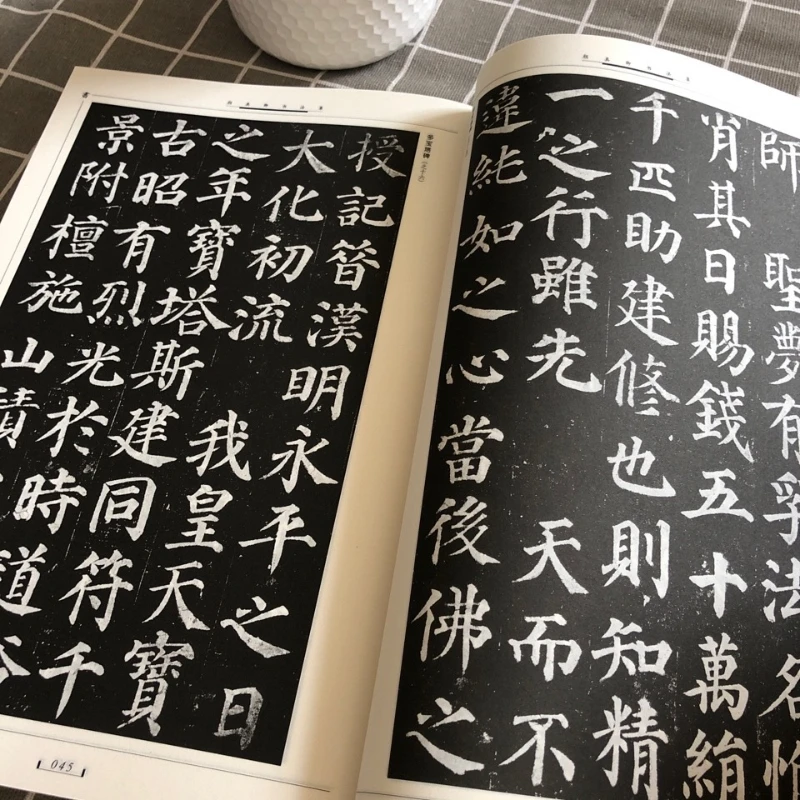 師 聖夢有孚法名惟
肖其日賜錢五十萬絹
千匹助建修也則知精
一之行雖先 天而不
違純如之心當後佛之
多宝塔碑
授記昔漢明永平之日
大化初流 我皇天寶
之年寶塔斯建同符千
古昭有烈光於時道俗
景附檀施山積
045